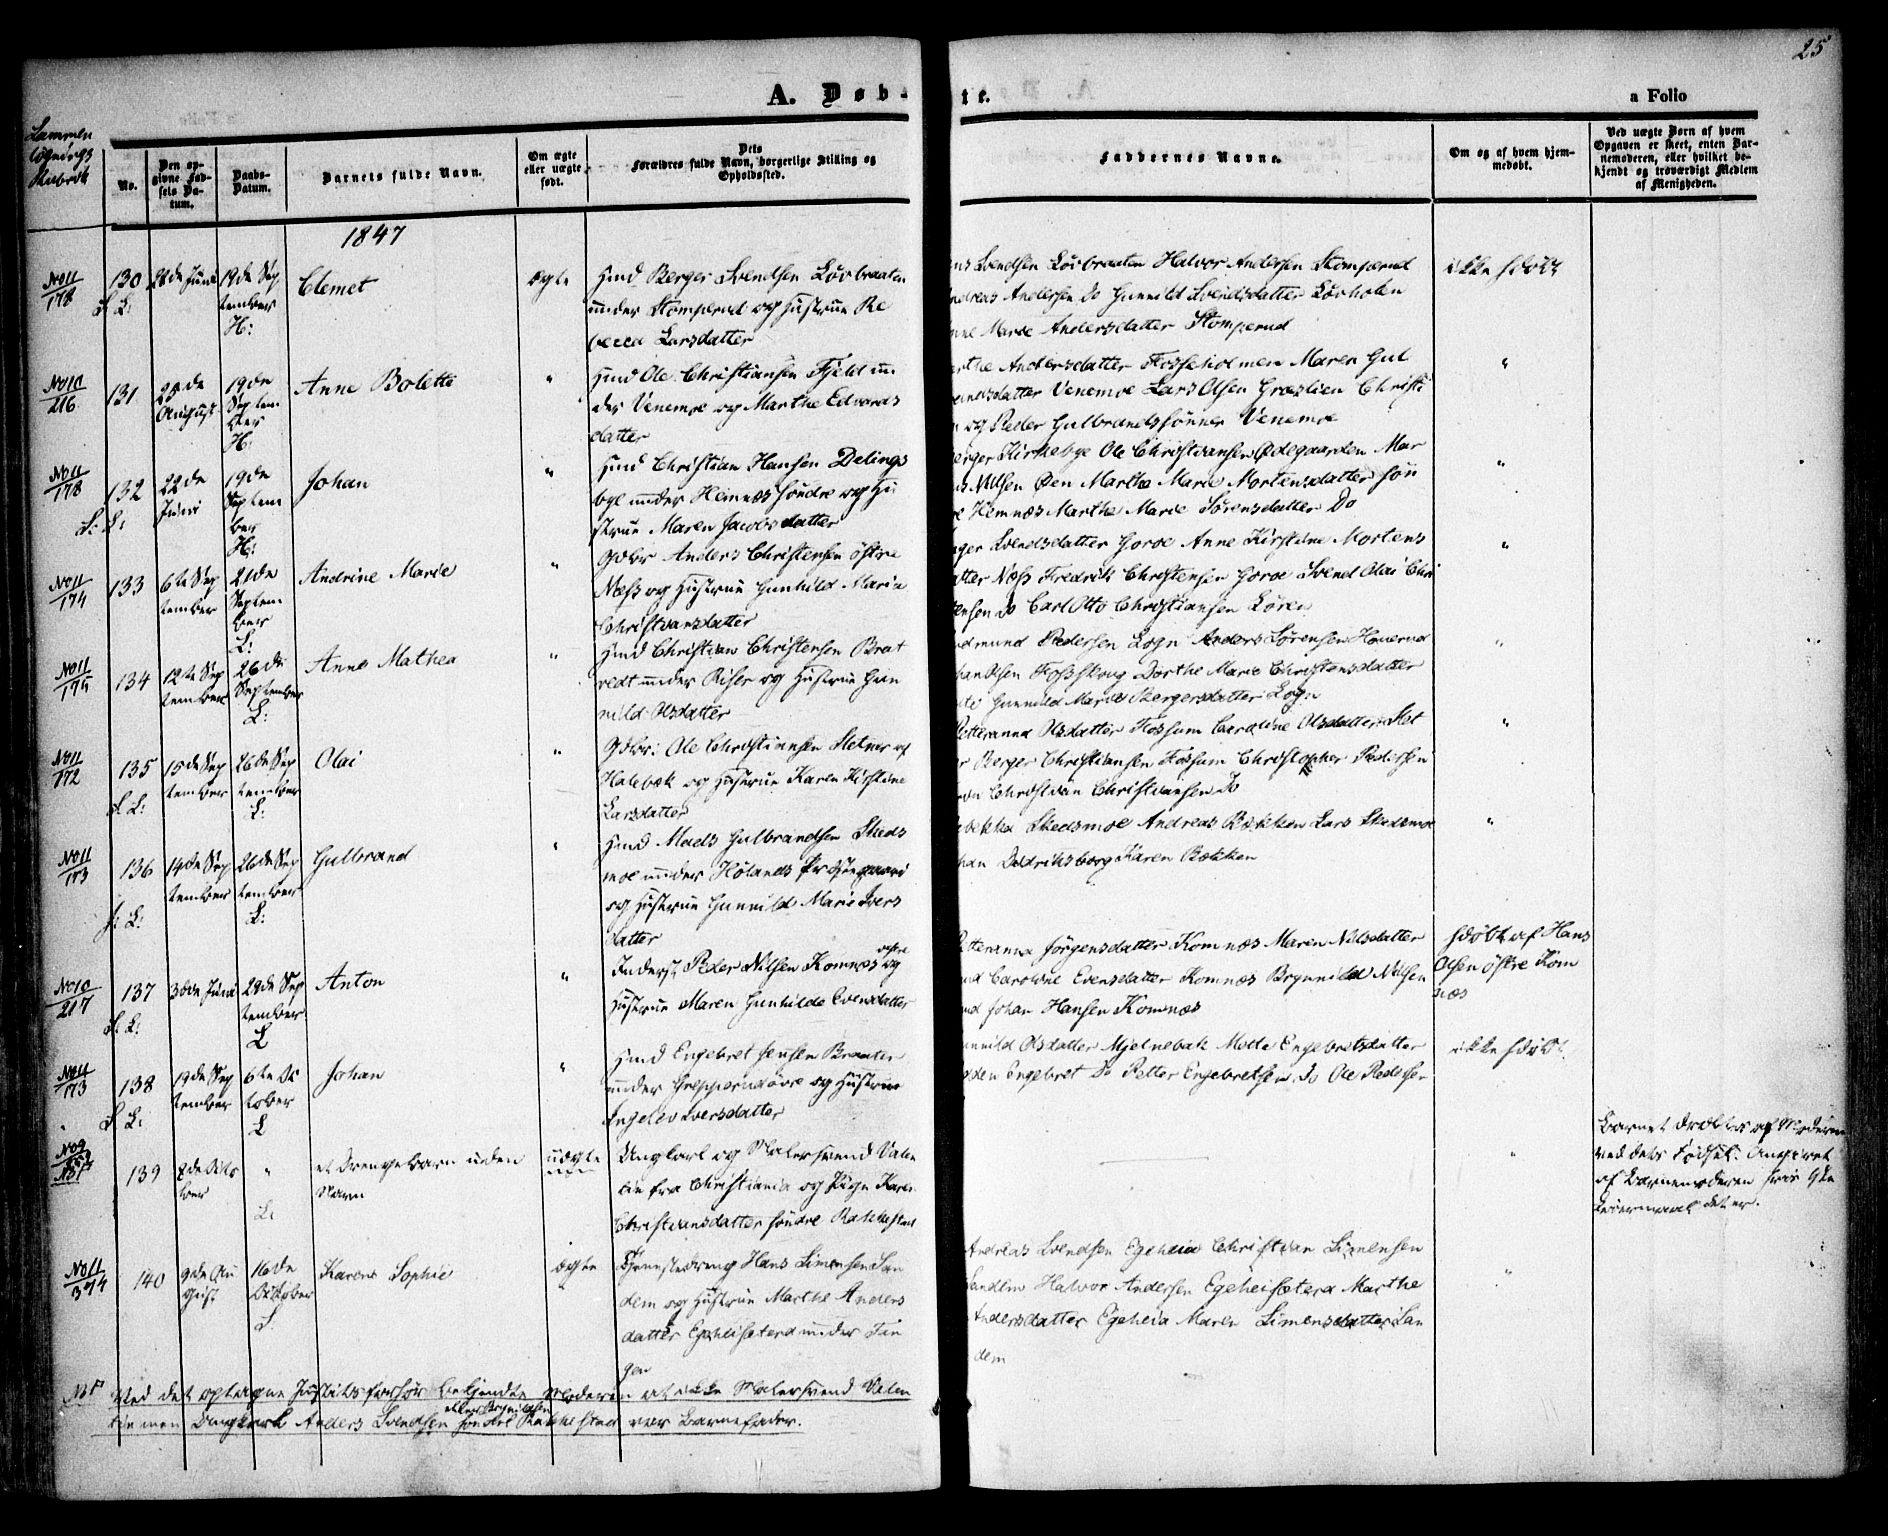 25
A. Døbte.
a Folio
No.
Den opgivne Fødsels Datum.
Daabs-Datum.
Barnets fulde Navn.
Om ægte eller uægte født.
Dets Forældres fulde Navn, borgerlige Stilling og Opholdssted.
Faddernes Navne.
Om og af hvem hjemmedøbt.
Ved uægte Børn af hvem Opgaven er skeet, enten Barnemoderen, eller hvilket bekjendt og troværdigt Medlem af Menigheden.
1847
No 11
178
130
19de Sep
tember
H:
Clemet
ægte
Hmd Berger Svendsen Løvbraaten
under Stomperud og Hustrue Re
becca Larsdatter
Svendsen Løvbraaten Halvor Andersen Stomperud
Andersen Do Gunnild Svendsdatter Løvholen
Marie Andersdatter Stomperud
ikke hdøbt
No 10
216
131
25de
August
19de
Septem
ber
H:
Anne Bolette
"
Hmd Ole Christiansen Fjeld un
der Venemoe og Marthe Edvards
datter
Andersdatter Fosseholmen Maren Gul
Venemoe Lars Olsen Græslien Christi
og Peder Gulbrandssønner Venemoe
"
No 11
178
132
22de
Juni
19de
Septem
ber
H:
Johan
"
Hmd Christian Hansen Delings
bye under Hemnæs søndre og Hu
strue Maren Jacobsdatter
Kirkebye Ole Christiansen Ødegaarden Mar
Nilsen Øen Marthe Marie Mortensdatter søn
Hemnæs Marthe Marie Sørensdatter Do
"
No 11
174
133
6te Sep
tember
21de
Septem
ber
L:
Andrine Marie
"
Gdbr Anders Christensen østre
Næss og Hustrue Gunhild Maria
Christiansdatter
Svendsdatter Goroe Anne Kirstine Mortens
datter Næss Fredrik Christensen Goroe Svend Olai Chri
stensen Do Carl Otto Christiansen Søren
"
No 11
175
134
12te Sep
tember
26de
September
L:
Anne Mathea
"
Hmd Christian Christensen Brat
vedt under Riser og Hustrue Gun
nild Olsdatter
Pedersen Logn Anders Sørensen Honerud
Olsen Fossskoug Dorthe Marie Christensdatter
Gunnild Marie Bergersdatter Logn
"
No 11
172
135
15de Sep
tember
26de Sep
tember
L:
Olai
"
Gdbr: Ole Christiansen Sletner af
Halebæk og Hustrue Karen Kirstine
Larsdatter
Olsdatter Fossum Caroline Olsdatter Slet
Berger Christiansen Fossum Christopher Pedersen
Christian Christiansen Do
"
No 11
173
136
14de Sep
tember
26de Sep
tember
L:
Gulbrand
"
Hmd Mads Gulbrandsen Skeds
moe under Hølands Præstegaard
og Hustrue Gunnild Marie Ivers
datter
Skedsmoe Andreas Bækken Lars Skedsmoe
Dedriksborg Karen Bækken
"
No 10
217
137
30de Juni
29de Sep
tember
L
Anton
"
Inderst Peder Nilsen Komnæs østre og
Hustrue Maren Gunhilde Evensdatter
Petteranna Jørgensdatter Komnæs Maren Nilsdatter
Caroline Evensdatter Komnæs Brynild Nilsen
Johan Hansen Komnæs
hdøbt af Hans
Olsen østre Kom
næs
No 11
173
138
19de Sep
tember
6te Oc
tober
L
Johan
"
Hmd Engebret Jensen Braaten
under Grepperud øvre og Hustrue
Ingeleo Iversdatter
Olsdatter Mjelnebak Mette Engebretsdatter
Engebret Do Petter Engebretsen Do Ole Pedersen
ikke hdøbt
No 9
139
"
L:
et Drengebarn uden
Navn
uægte
Ungkarl og Malersvend Valen
tin fra Christiania og Pige Karen
Christiansdatter søndre Rakkestad
"
Barnet dræbtes af Moderen
ved dets Fødsel. Angivet
af Barnemoderen hvis 1ste
Leiermaal det er.
No 11
374
140
9de Au
gust
16de
October
S:
Karen Sophie
ægte
Tjenestedreng Hans Simensen San
dem og Hustrue Marthe Anders
datter Egeheisæterd under Tan
gen
Andreas Svendsen Egeheia Christian Simensen
Sandem Halvor Andersen Egeheisæterd Marthe
Andersdatter Egeheia Maren Simensdatter San
dem
"
Ved det optagne Justitsforhør bekjendte Moderen at ikke Malersvend Valen
tin men Ungkarl Anders Svendsen Rakkestad var Barnefader.